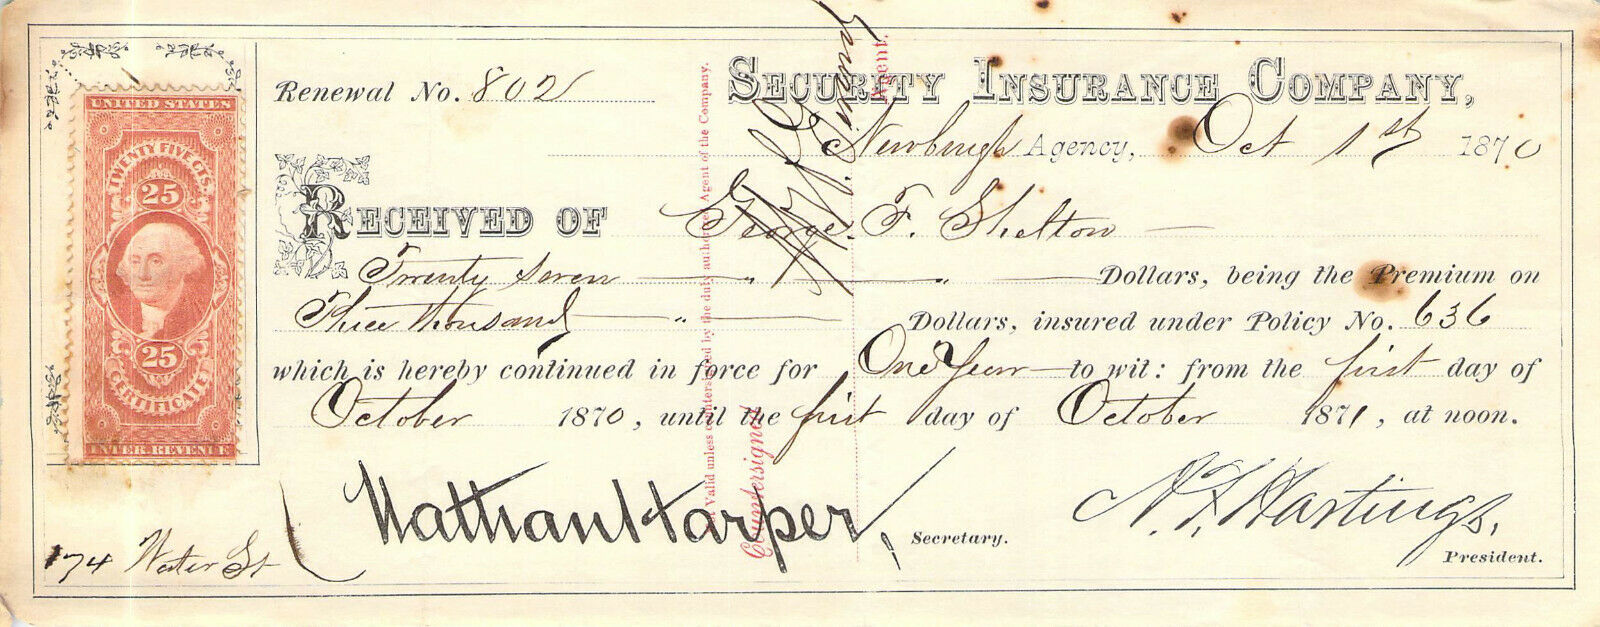 UNITED STATES
TWENTY FIVE CTS.
25
25
CERTIFICATE
INTER. REVENUE
174 Water St
Renewal No. 802
SECURITY INSURANCE COMPANY,
Newburgh Agency, Oct 1st 1870
RECEIVED OF George F. Shelton
Twenty seven " " Dollars, being the Premium on
Three thousand " Dollars, insured under Policy No. 636
which is hereby continued in force for One Year to wit: from the first day of
October 1870, until the first day of October 1871, at noon.
Nathan Harper, Secretary.
N. F. Hastings, President.
Not Valid unless countersigned by the duly authorized Agent of the Company.
Countersigned
Agent.